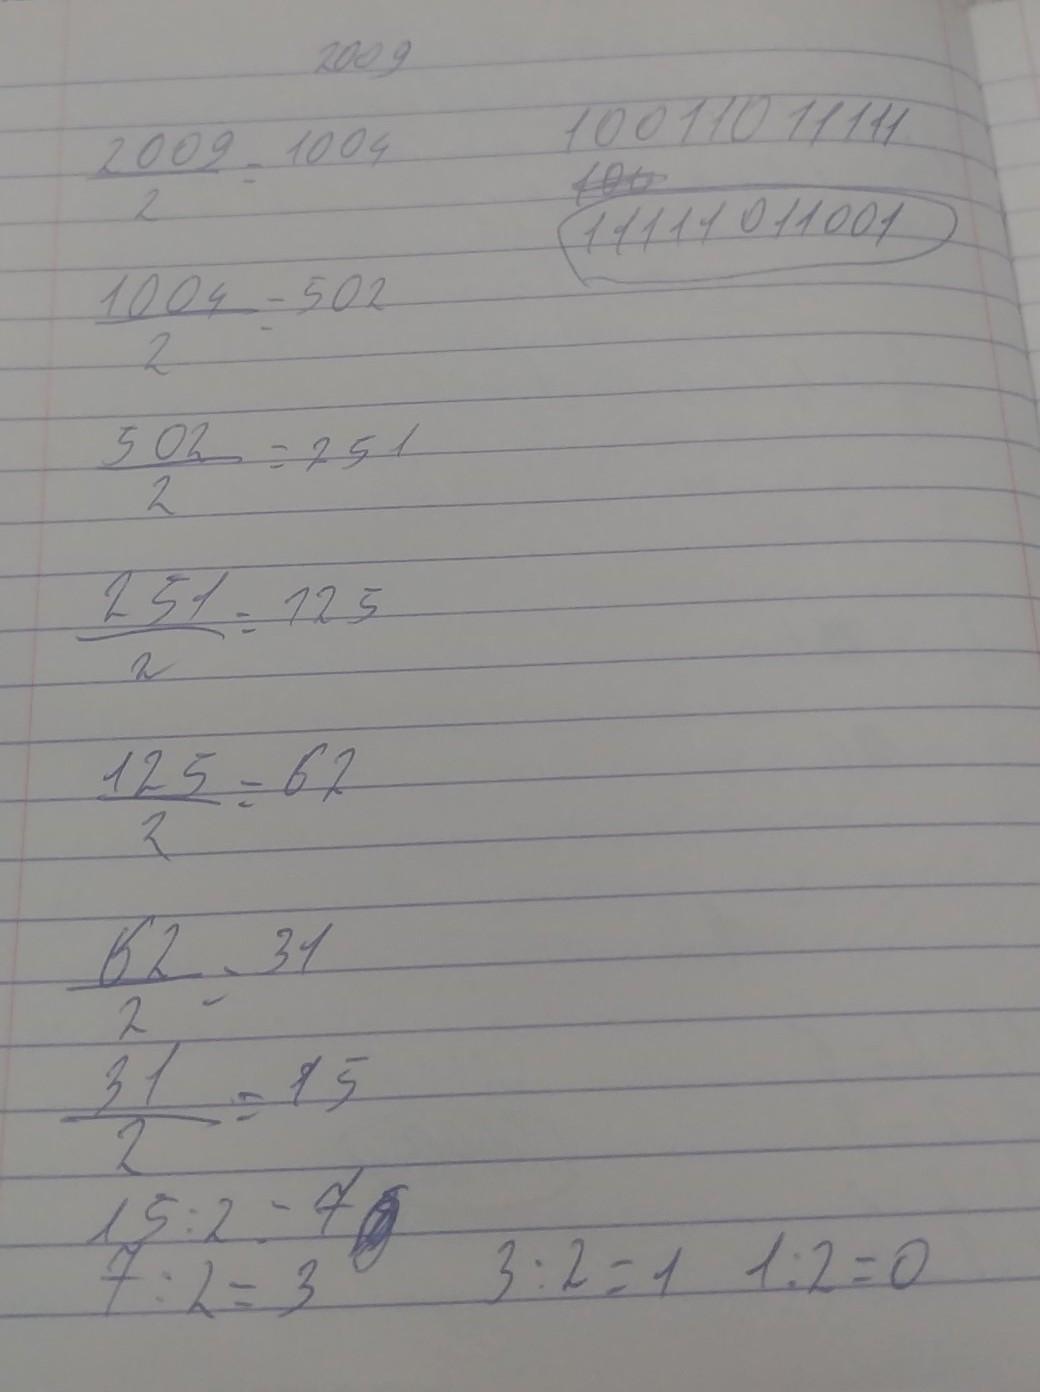 2009
2009/2 = 1004
10011011111
11111011001
1004/2 = 502
502/2 = 251
251/2 = 125
125/2 = 62
62/2 = 31
31/2 = 15
15:2=7
7:2=3 3:2=1 1:2=0